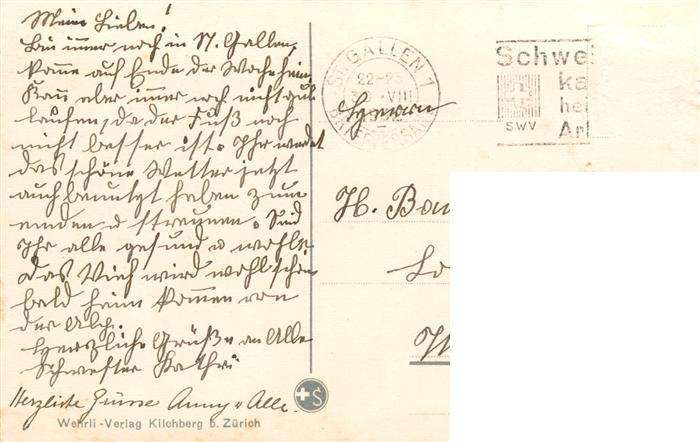 Meine Lieben!
Bin immer noch in St. Gallen,
komme auf Ende der Woche heim
Kann aber immer noch nicht gut
laufen, da der Fuß noch
nicht besser ist. Ihr werdet
das schöne Wetter jetzt
auch benutzt haben zum
emden u streuen. Sind
Ihr alle gesund u wohl.
das Vieh wird wohl schon
bald heim kommen von
der Alp.
Herzliche Grüße an Alle
Schwester Kathri
Herzliche Grüsse Anny u Alle.
Wehrli-Verlag Kilchberg b. Zürich
ST. GALLEN 1
22-
VIII
Schwei
ka
he
Ar
SWV
Herrn
H. Bau
S